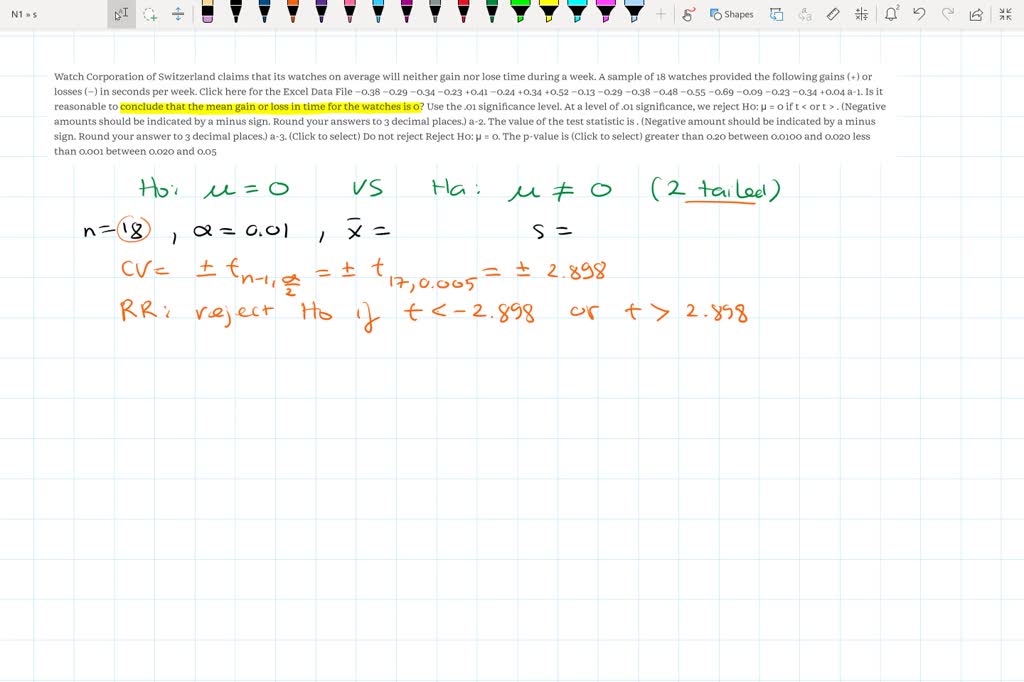 N1 » s
Shapes
2
Watch Corporation of Switzerland claims that its watches on average will neither gain nor lose time during a week. A sample of 18 watches provided the following gains (+) or
losses (−) in seconds per week. Click here for the Excel Data File −0.38 −0.29 −0.34 −0.23 +0.41 −0.24 +0.34 +0.52 −0.13 −0.29 −0.38 −0.48 −0.55 −0.69 −0.09 −0.23 −0.34 +0.04 a-1. Is it
reasonable to conclude that the mean gain or loss in time for the watches is 0? Use the .01 significance level. At a level of .01 significance, we reject H0: μ = 0 if t < or t > . (Negative
amounts should be indicated by a minus sign. Round your answers to 3 decimal places.) a-2. The value of the test statistic is . (Negative amount should be indicated by a minus
sign. Round your answer to 3 decimal places.) a-3. (Click to select) Do not reject Reject H0: μ = 0. The p-value is (Click to select) greater than 0.20 between 0.0100 and 0.020 less
than 0.001 between 0.020 and 0.05
Ho: μ = 0 VS Ha: μ ≠ 0 (2 tailed)
n = 18 , α = 0.01 , x̄ = s =
CV = ± t n-1, α/2 = ± t 17, 0.005 = ± 2.898
RR: reject Ho if t < - 2.898 or t > 2.898